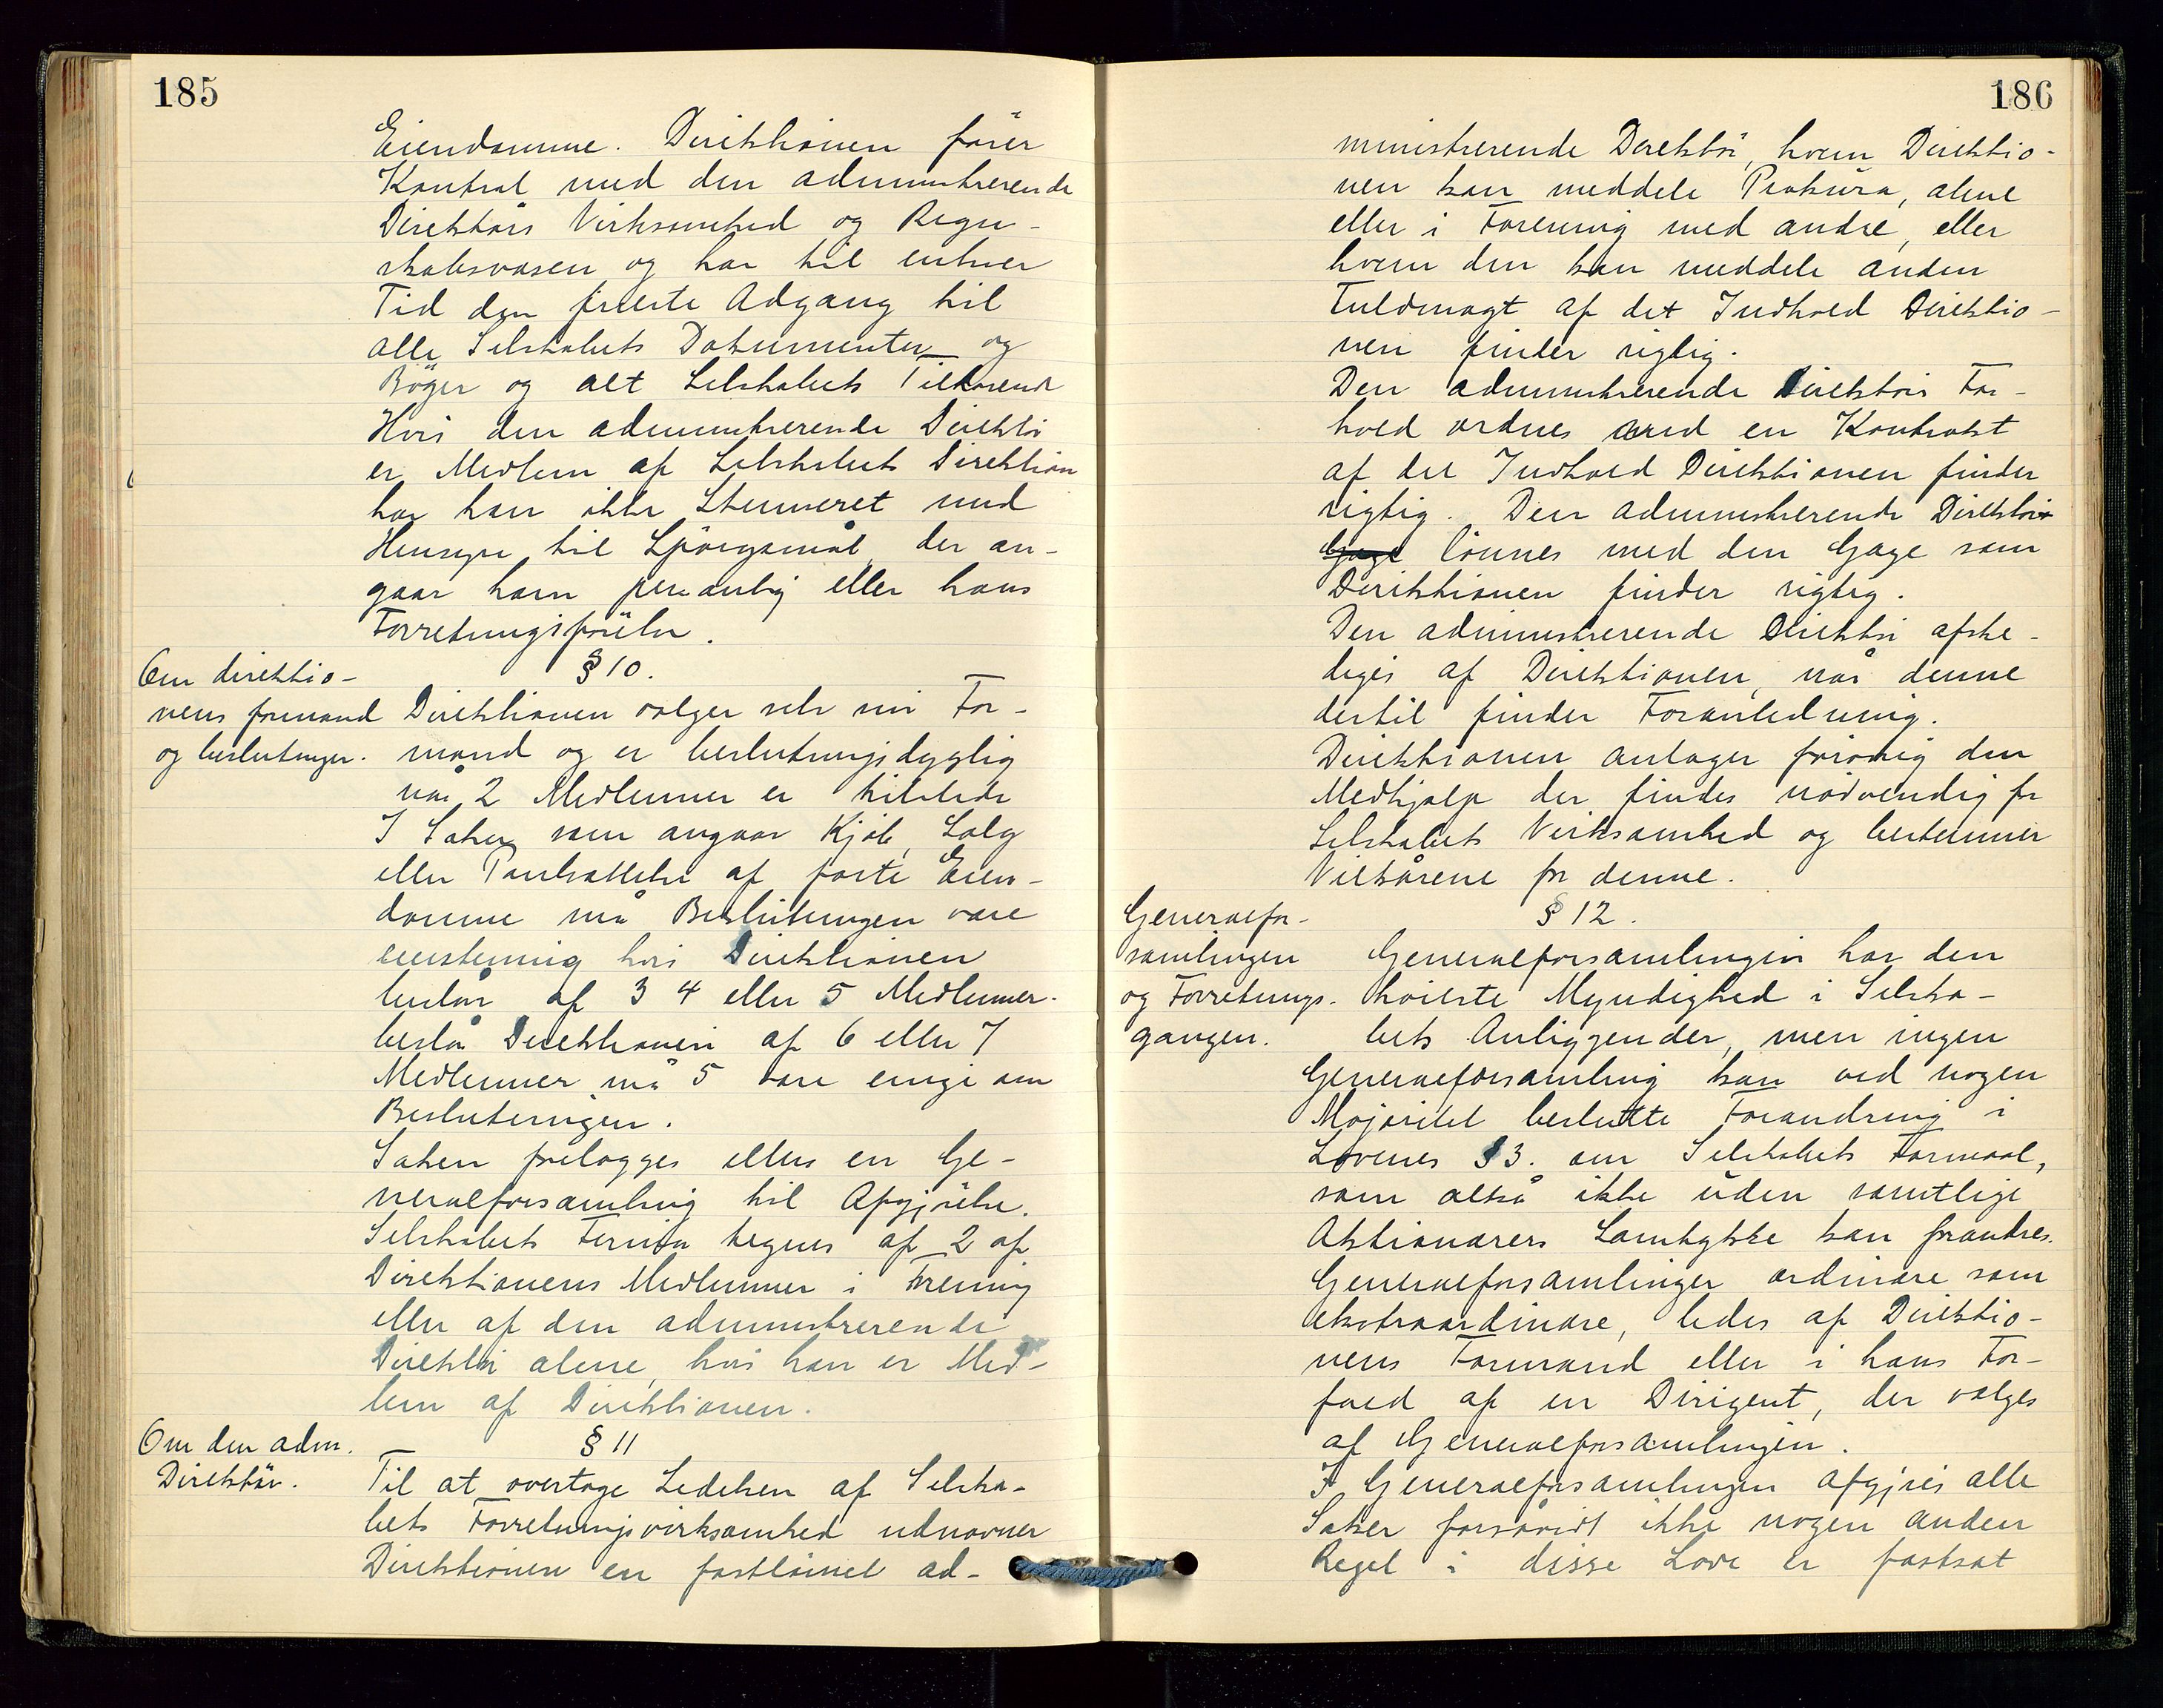 185
Eiendomme. Direktionen fører
Kontrol med den administrerende
Direktørs Virksomhed og Regn-
skabsvæsen og har til enhver
Tid den frieste Adgang til
alle Selskabets Dokumenter og
Bøger og alt Selskabets Tilhørende
Hvis den administrerende Direktør
er Medlem af Selskabets Direktion
har han ikke Stemmeret med
Hensyn til Spørgsmål, der an-
gaar ham personlig eller hans
Forretningsførelse.
Om direktio-
nens formand
og beslutninger.
§ 10.
Direktionen vælger selv sin For-
mand og er beslutningsdygtig
når 2 Medlemmer er tilstede
I Saker som angaar Kjøb, Salg
eller Pantsættelse af faste Eien-
domme må Beslutningen være
enstemmig hvis Direktionen
består af 3 4 eller 5 Medlemmer.
består Direktionen af 6 eller 7
Medlemmer må 5 være enige om
Beslutningen.
Saken forelægges ellers en Ge-
neralforsamling til Afgjørelse.
Selskabets Firma tegnes af 2 af
Direktionens Medlemmer i Forening
eller af den administrerende
Direktør alene, hvis han er Med-
lem af Direktionen.
Om den adm.
Direktør.
§ 11
Til at overtage Ledelsen af Selska-
bets Forretningsvirksomhed udnævner
Direktionen en fastlønnet ad-
186
ministrerende Direktør, hvem Direktio-
nen kan meddele Prokura, alene
eller i Forening med andre, eller
hvem den kan meddele anden
Fuldmagt af det Indhold Direktio-
nen finder rigtig.
Den administrerende Direktørs For-
hold ordnes ved en Kontrakt
af det Indhold Direktionen finder
rigtig. Den administrerende Direktør
Gage lønnes med den Gage som
Direktionen finder rigtig.
Den administrerende Direktør afske-
diges af Direktionen, når denne
dertil finder Foranledning.
Direktionen antager forøvrig den
Medhjælp der findes nødvendig for
Selskabets Virksomhed og bestemmer
Vilkårene for denne.
Generalfor-
samlingen
og Forretnings-
gangen.
§ 12.
Generalforsamlingen har den
høieste Myndighed i Selska-
bets Anliggender, men ingen
Generalforsamling kan ved nogen
Majoritet beslutte Forandring i
Lovenes § 3. om Selskabets Formaal,
som altså ikke uden samtlige
Aktionærers Samtykke kan forandres.
Generalforsamlinger ordinære som
ekstraordinære, ledes af Direktio-
nens Formand eller i hans For-
fald af en Dirigent, der vælges
af Generalforsamlingen.
I Generalforsamlingen afgjøres alle
Saker forsåvidt ikke nogen anden
Regel i disse Love er fastsat